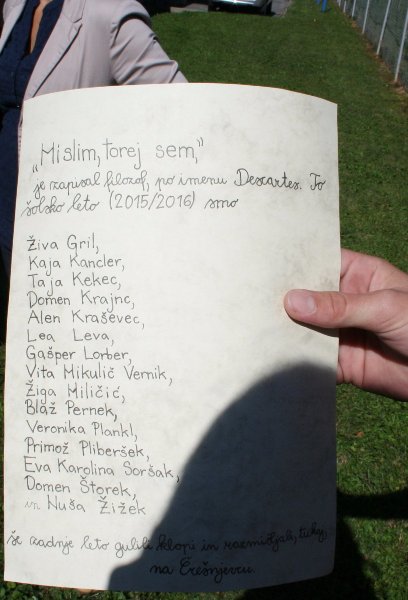 „Mislim, torej sem,“
je zapisal filozof, po imenu Descartes. To
šolsko leto (2015/2016) smo
Živa Gril,
Kaja Kancler,
Taja Kekec,
Domen Krajnc,
Alen Kraševec,
Lea Leva,
Gašper Lorber,
Vita Mikulič Vernik,
Žiga Miličić,
Blaž Pernek,
Veronika Plankl,
Primož Pliberšek,
Eva Karolina Soršak,
Domen Štorek,
in Nuša Žižek
še zadnje leto gulili klopi in razmišljali, tukaj,
na Črešnjevcu.